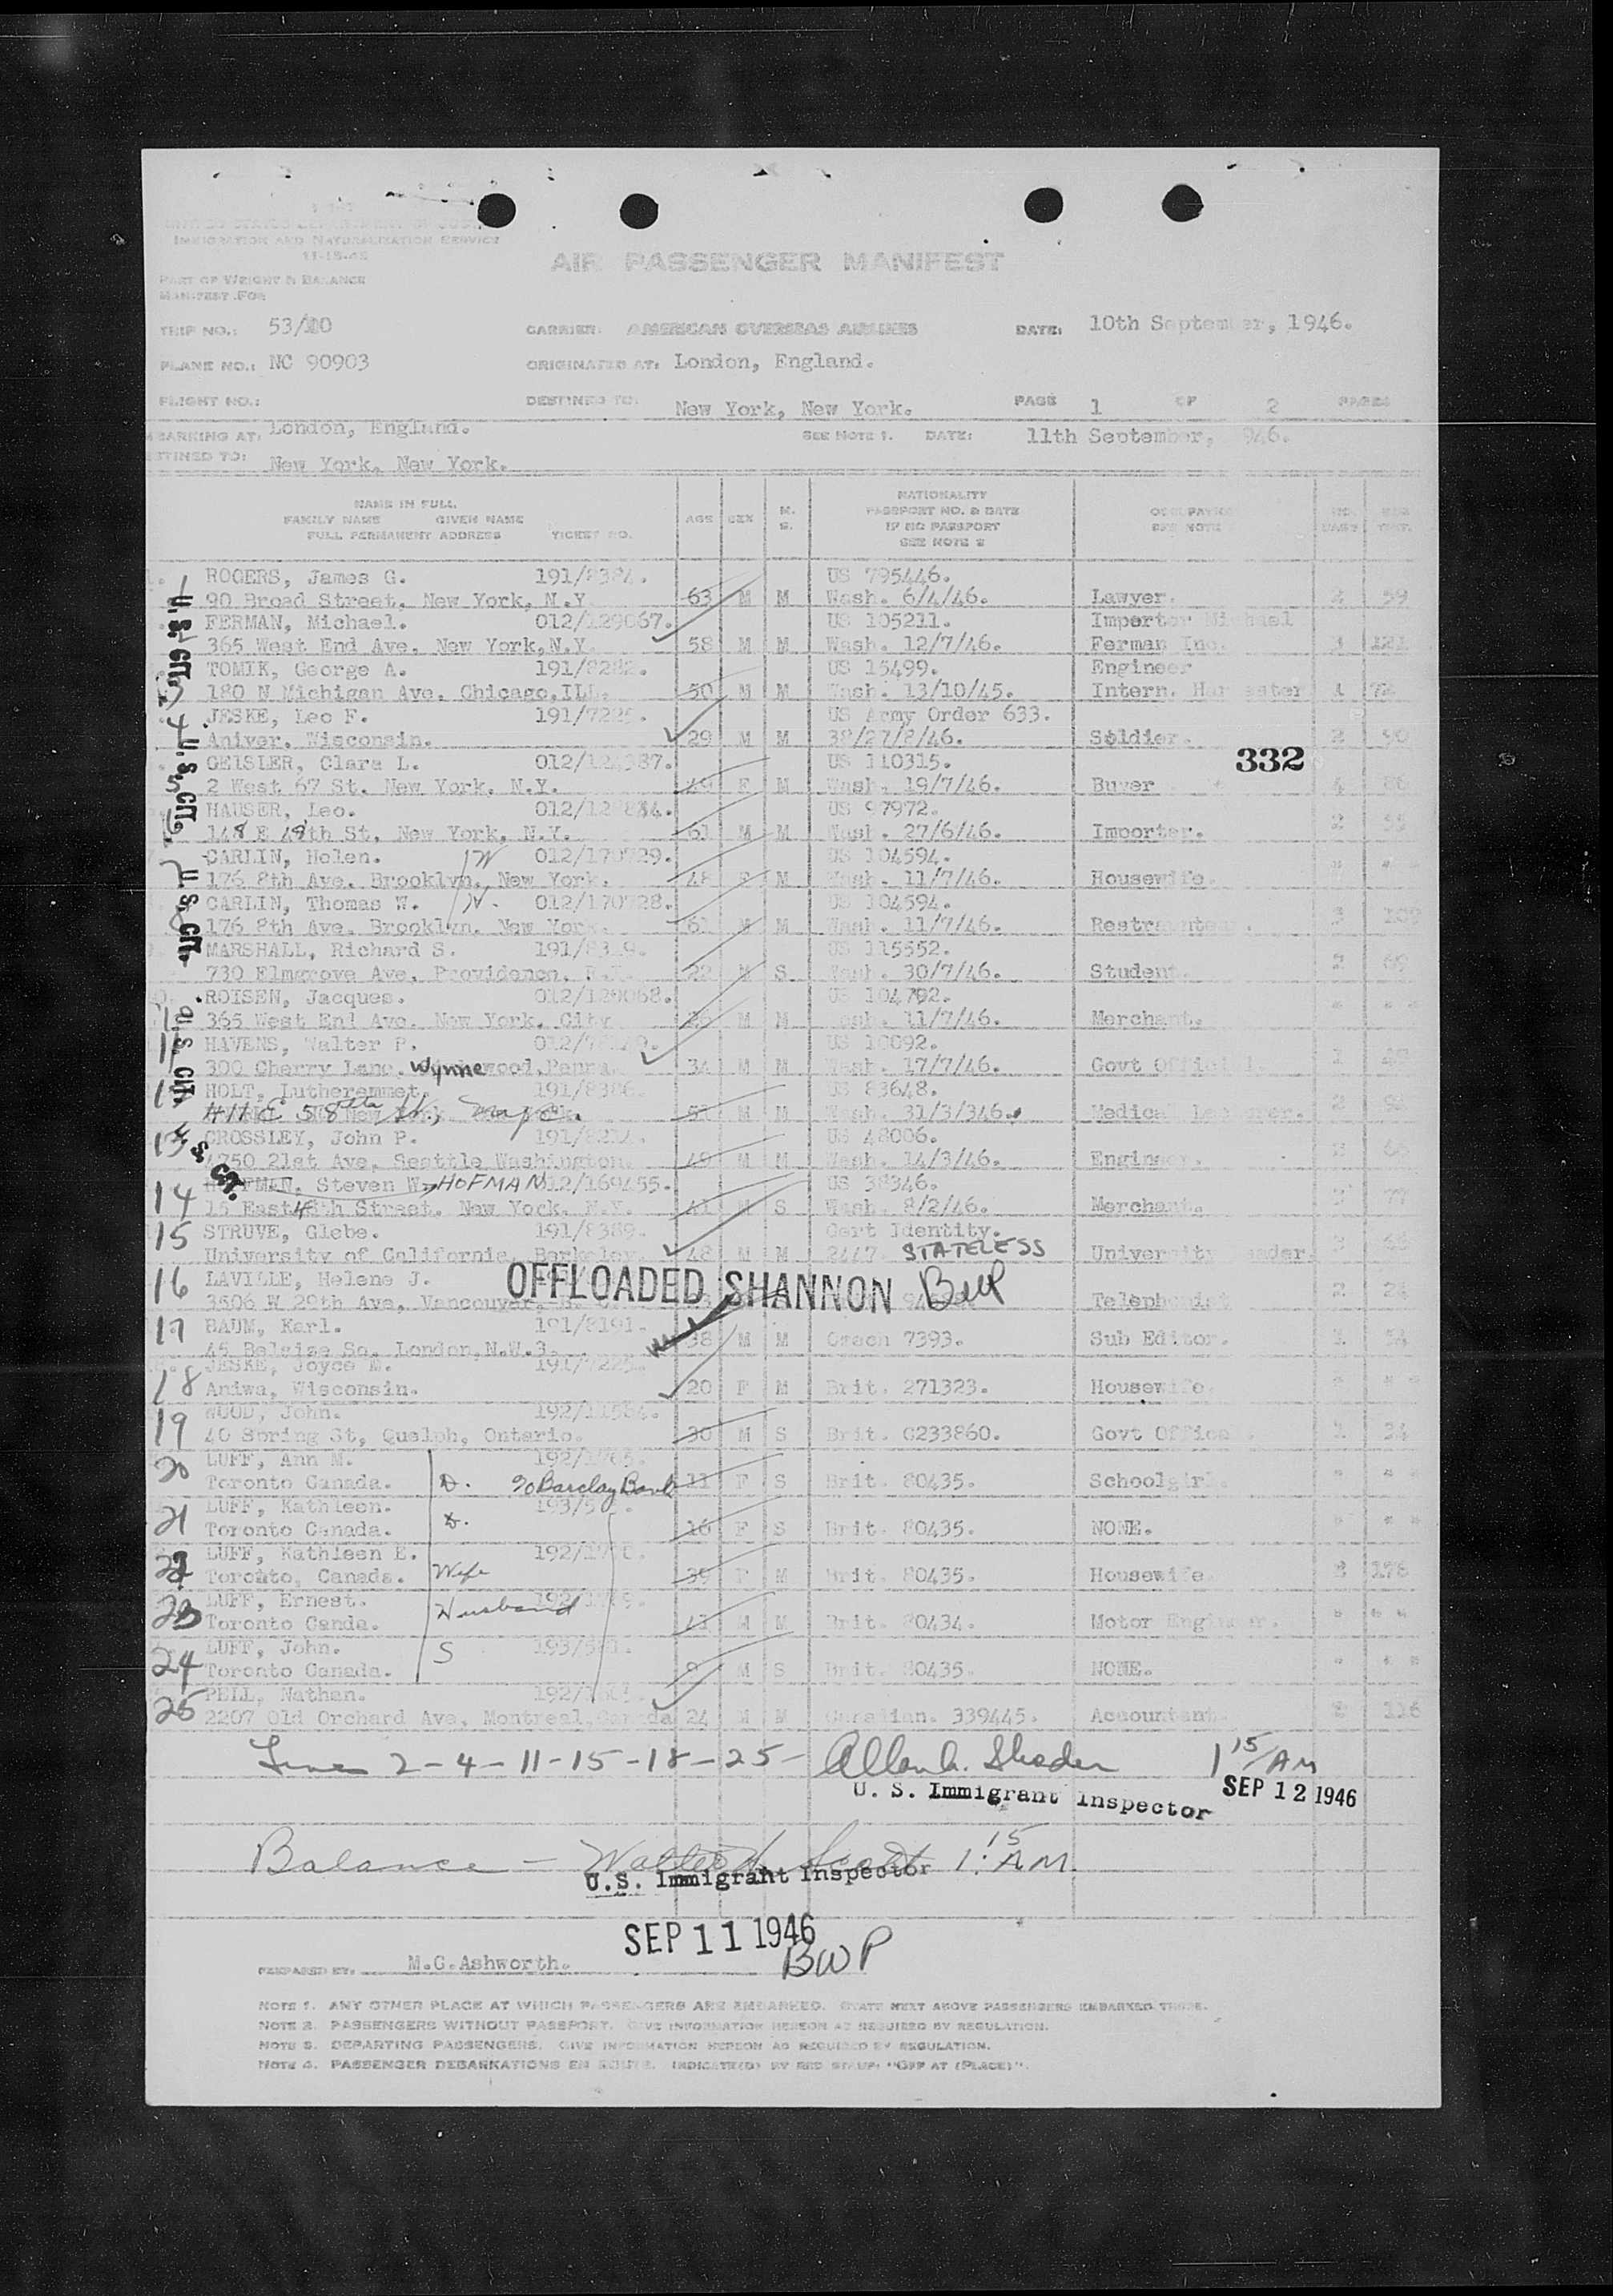 IMMIGRATION AND NATURALIZATION SERVICE
11-15-45
AIR PASSENGER MANIFEST
PART OF WEIGHT & BALANCE
MANIFEST FOR
TRIP NO.: 53/ CARRIER: AMERICAN OVERSEAS AIRLINES DATE: 10th September, 1946.
PLANE NO.: NC 90903 ORIGINATED AT: London, England.
FLIGHT NO.: DESTINED TO: New York, New York. PAGE 1 OF 2 PAGES
EMBARKING AT: London, England. SEE NOTE 1. DATE: 11th September, 946.
DESTINED TO: New York, New York.
NAME IN FULL
FAMILY NAME GIVEN NAME
FULL PERMANENT ADDRESS TICKET NO. AGE SEX M. S. NATIONALITY PASSPORT NO. & DATE IF NO PASSPORT SEE NOTE 2
1 ROGERS, James G. 191/8384. US 795446.
90 Broad Street, New York, N.Y. 63 M M Wash. 6/4/46. Lawyer. 2 59
FERMAN, Michael. 012/129067. US 105211. Importer Michael
365 West End Ave, New York,N.Y. 58 M M Wash. 12/7/46. Ferman Inc. 3 121
TOMIK, George A. 191/8282. US 15499. Engineer
180 N Michigan Ave, Chicago,ILL. 50 M M Wash. 13/10/45. Intern. Harvester 72
4 JESKE, Leo F. 191/7225. US Army Order 633.
Aniver, Wisconsin. 29 M M 38/27/8/46. Soldier. 2 50
332
5 GEISLER, Clara L. US 110315.
2 West 67 St. New York. N.Y. 49 F M Wash. 19/7/46. Buyer
6 HAUSER, Leo. US 97972.
148 E 48th St, New York, N.Y. 61 M M Wash. 27/6/46. Importer. 2 55
7 CARLIN, Helen. W 012/170729. US 104594.
176 8th Ave. Brooklyn, New York. 48 F M Wash. 11/7/46. Housewife. " " "
8 CARLIN, Thomas W. 012/170728. US 104594.
176 8th Ave. Brooklyn. New York. 61 M M Wash. 11/7/46.
MARSHALL, Richard S. 191/8319. US 115552.
730 Elmgrove Ave, Providence, R.I. 22 M S Wash. 30/7/46. Student.
ROISEN, Jacques. 012/129068. US 104792.
365 West End Ave. New York. City 26 M M Wash. 11/7/46. Merchant. " " "
11 HAVENS, Walter P. US 10092.
300 Cherry Lane, Wynnewood,Penna. 34 M M Wash. 17/7/46. Govt Official.
12 HOLT, Lutheremmet. 191/8386. US 83648.
51 M M Wash. 31/3/346. Medical Lecturer.
13 CROSSLEY, John P. US 48006.
4750 21st Ave, Seattle Washington. 49 M M Wash. 14/3/46. Engineer.
14 HOFFMAN, Steven W. HOFMAN 012/169455. US 38346.
15 East 4 th Street. New York. N.Y. 41 M S Wash. 8/2/46. Merchant. 77
15 STRUVE, Glebe. 191/8389. Cert Identity.
University of California, Berkeley. 48 M M 2447. STATELESS University Reader.
16 LAVILLE, Helene J. OFFLOADED SHANNON BWP
3506 W 29th Ave, Vancouver, B. C. Telephonist 2 24
17 BAUM, Karl. 191/8191. 38 M M Czech 7393. Sub Editor.
45 Belsize Sq. London,N.W.3.
18 JESKE, Joyce M. 191/7225.
Aniwa, Wisconsin. 20 F M Brit. 271323. Housewife. " " "
19 WOOD, John. 192/11564.
40 Spring St, Guelph, Ontario. 30 M S Brit. C233860. Govt Office 1 34
20 LUFF, Ann M.
Toronto Canada. D. c/o Barclay Bank 11 F S Brit. 80435. Schoolgirl. " " "
21 LUFF, Kathleen.
Toronto Canada. D. 16 F S Brit. 80435. NONE. " " "
22 LUFF, Kathleen E.
Toronto, Canada. Wife 39 F M Brit. 80435. Housewife. 176
23 LUFF, Ernest.
Toronto Canda. Husband 41 M M Brit. 80434. Motor Engineer. " " "
24 LUFF, John.
Toronto Canada. S 9 M S Brit. 80435. NONE. " " "
25 PELL, Nathan.
2207 Old Orchard Ave, Montreal,Canada 24 M M Canadian. 339445. Accountant. 2 116
U. S. CIT.
U. S. CIT.
U. S. CIT.
U. S. CIT.
U. S. CIT.
Lines 2-4-11-15-18-25- 1 15/AM
U. S. Immigrant Inspector SEP 12 1946
Balance - 1:15 AM.
U.S. Immigrant Inspector
SEP 11 1946
BWP
PREPARED BY: M.C.Ashworth.
NOTE 1. ANY OTHER PLACE AT WHICH PASSENGERS ARE EMBARKED. STATE NEXT ABOVE PASSENGERS EMBARKED THERE.
NOTE 2. PASSENGERS WITHOUT PASSPORT. GIVE INFORMATION HEREON AS REQUIRED BY REGULATION.
NOTE 3. DEPARTING PASSENGERS. GIVE INFORMATION HEREON AS REQUIRED BY REGULATION.
NOTE 4. PASSENGER DEBARKATIONS EN ROUTE. INDICATE(D) BY RED STAMP: "OFF AT (PLACE)".